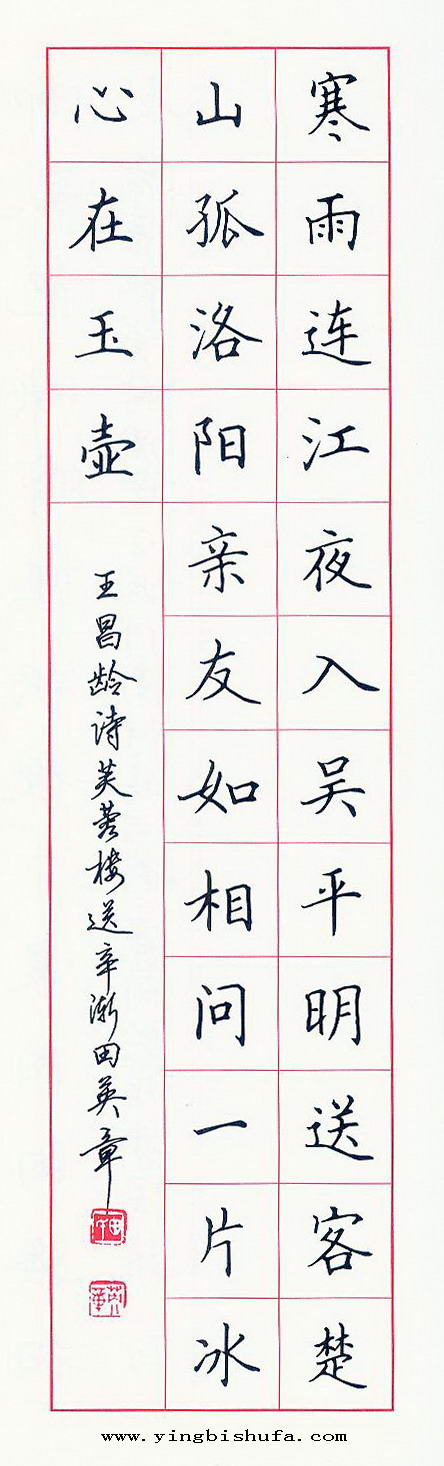 寒雨连江夜入吴平明送客楚
山孤洛阳亲友如相问一片冰
心在玉壶
王昌龄诗芙蓉楼送辛渐田英章
www.yingbishufa.com